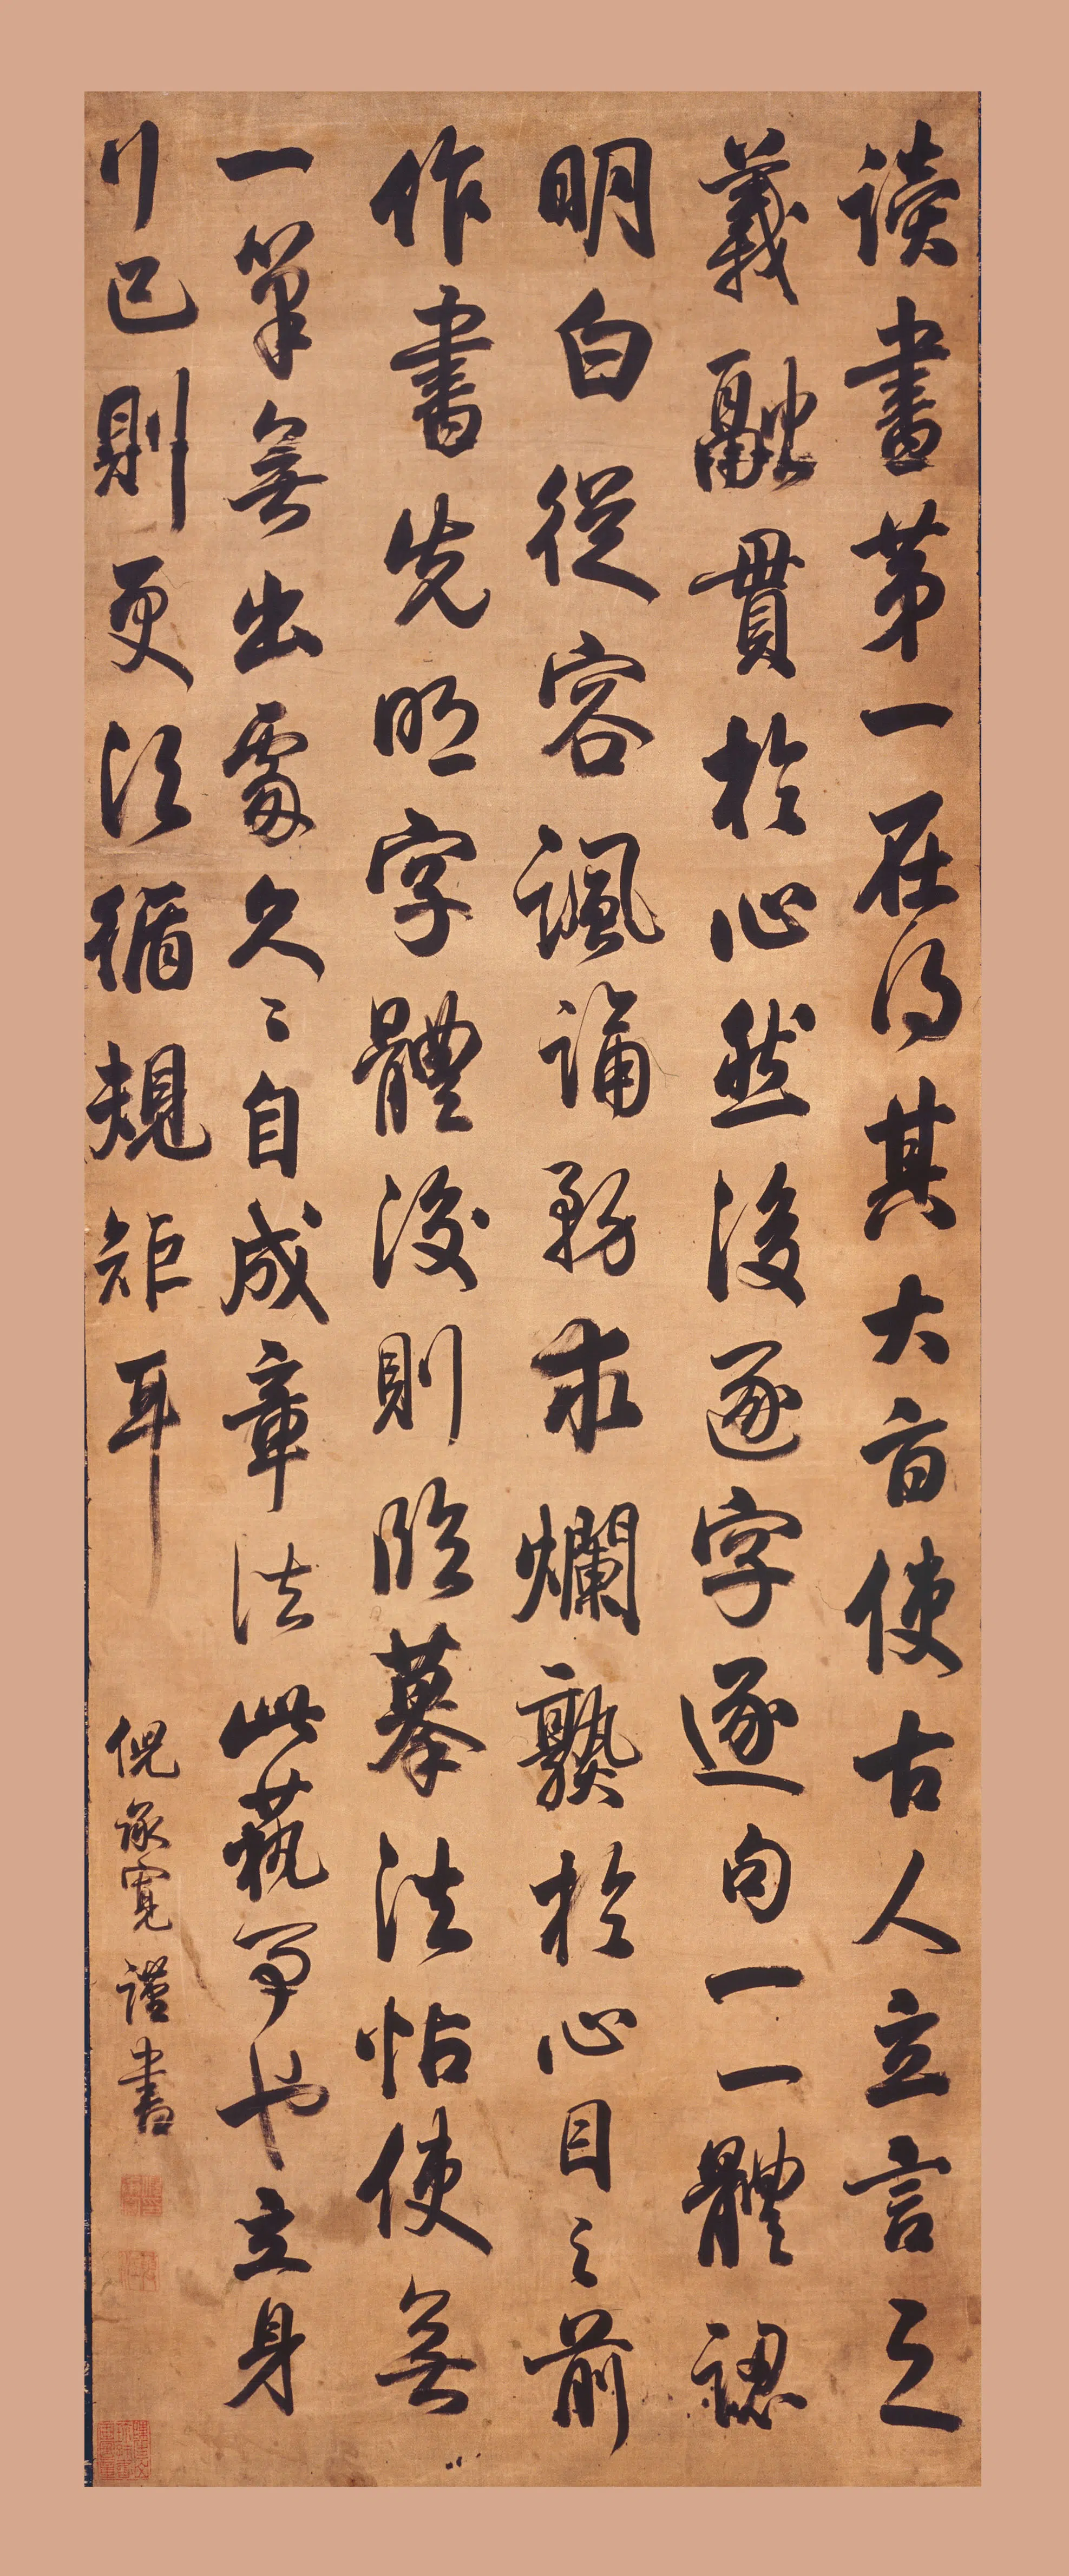 讀書第一在得其大旨使古人立言之
義融貫於心然後逐字逐句一一體認
明白從容諷誦務求爛熟於心目之前
作書先明字體後則臨摹法帖使無
一筆無出處久〻自成章法此藝事也立身
行己則更須循規矩耳
倪承寬謹書